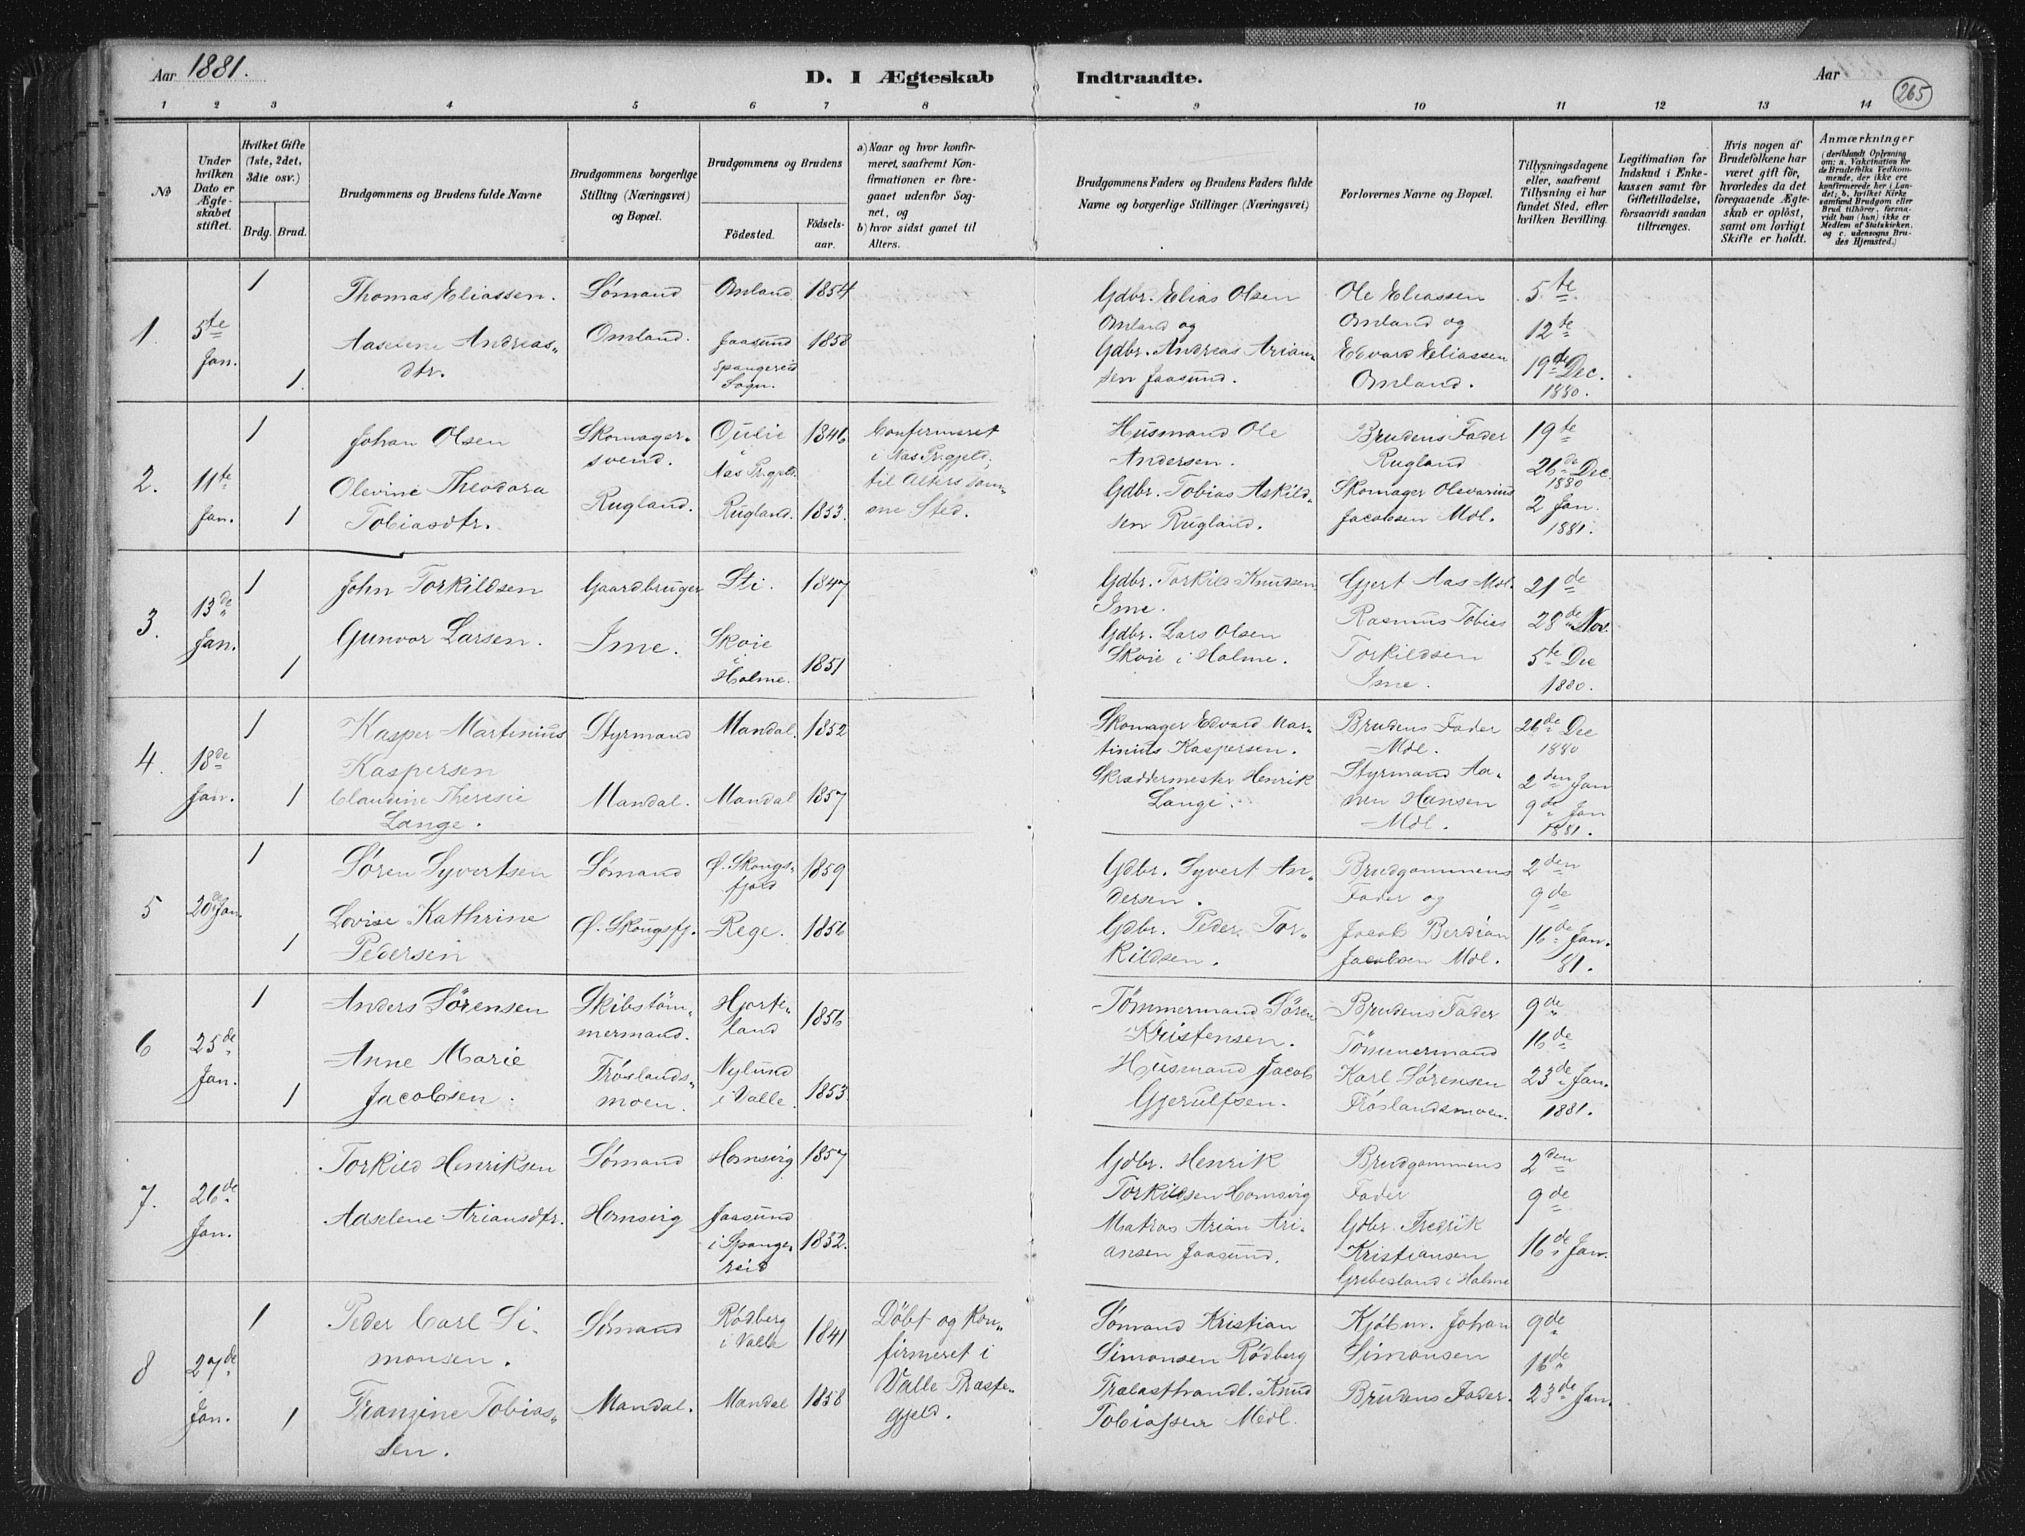 Aar 1881.
D. I Ægteskab Indtraadte.
Aar
265
1 2 3 4 5 6 7 8 9 10 11 12 13 14
No
Under hvilken Dato er Ægteskabet stiftet.
Hvilket Gifte (1ste, 2det, 3die osv.)
Brdg. Brud.
Brudgommens og Brudens fulde Navne
Brudgommens borgerlige Stilling (Næringsvei) og Bopæl.
Brudgommens og Brudens
Födested.
Födsels-aar.
a) Naar og hvor konfirmeret, saafremt Konfirmationen er foregaaet udenfor Sognet, og
b) hvor sidst gaaet til Alters.
Brudgommens Faders og Brudens Faders fulde Navne og borgerlige Stillinger (Næringsvei)
Forlovernes Navne og Bopæl.
Tillysningsdagene eller, saafremt Tillysning ei har fundet Sted, efter hvilken Bevilling.
Legitimation for Indskud i Enkekassen samt for Giftetilladelse, forsaavidt saadan tiltrænges.
Hvis nogen af Brudefolkene har været gift för, hvorledes da det foregaaende Ægteskab er oplöst, samt om lovligt Skifte er holdt.
Anmærkninger
(deriblandt Oplysning om: a. Vakcination for de Brudefolks Vedkommende, der ikke ere konfirmerede her i Landet; b. hvilket Kirkesamfund Brudgom eller Brud tilhörer, forsaavidt han (hun) ikke er Medlem af Statskirken, og c. udensogns Brudes Hjemsted.)
1. 5te Jan.
1
1.
Thomas Eliassen.
Aaselene Andreas-
dtr.
Sømand
Omland.
Omland 1854
Jaasund 1858
Spangereid
Sogn.
Gdbr. Elias Olsen
Omland og
Gdbr. Andreas Arian-
sen Jaasund.
Ole Eliassen
Omland og
Edvard Eliassen
Omland.
5te
12te
19de Dec.
1880.
2. 11te Jan.
1
1
Johan Olsen
Olevine Theodora
Tobiasdtr.
Skomager-
svend.
Rugland.
i
Nas Pr.gjeld.
1846
Rugland. 1853.
Confirmeret
i Nas Pr.gjeld;
til Alters sam-
me Sted.
Husmand Ole
Andersen.
Gdbr. Tobias Askild-
sen Rugland.
Brudens Fader
Rugland
Skomager Olevarius
Jacobsen Mdl.
19te
26de Dec
1880
2 Jan.
1881.
3. 13de Jan.
1
1
John Torkildsen
Gunvor Larsen.
Gaardbruger
Ime.
Sti. 1847
Skoie
i
Halme. 1851
Gdbr. Torkild Knudsen
Ime.
Gdbr. Lars Olsen
Skoie i Halme.
Gjert Aas Mdl.
Rasmus Tobias
Torkildsen
Ime.
21de
28de Nov.
5te Dec
1880.
4. 18de Jan.
1
1
Kasper Martinius
Kaspersen
Claudine Theresie
Lange.
Styrmand
Mandal.
Mandal. 1852
Mandal 1857
Skomager Edvard Mar-
tinius Kaspersen.
Skræddermester Henrik
Lange.
Brudens Fader
Mdl.
Styrmand Aa-
nen Hansen
Mdl.
26de Dec
1880
2den Jan
9de Jan
1881.
5 20de Jan.
1
1
Søren Syvertsen
Lovise Kathrine
Pedersen
Sømand
Ø. Skougsfj.
Ø. Skougs-
fjeld 1859
Rege. 1856
Gdbr. Syvert An-
dersen.
Gdbr. Peder Tor-
kildsen.
Brudgommens
Fader og
Jacob Berdian
Jacobsen Mdl.
2den
9de
16de Jan.
81.
6 25de Jan.
1
1
Anders Sörensen
Anne Marie
Jacobsen.
Skibstöm-
mermand.
Fröslands-
moen.
Hjorte-
land 1856
Nylund
i Valle. 1853
Tömmermand Sören
Kristensen.
Husmand Jacob
Gjerulfsen.
Brudens Fader
Tömmermand
Karl Sørensen
Fröslandsmoen.
9de
16de
23de Jan.
1881.
7. 26de Jan.
Torkild Henriksen
Adselene Ariansdtr.
Sømand
Homsvig
Homsvig 1857
Jaasund
i Spange-
reid 1852.
Gdbr. Henrik
Torkildsen Homsvig
Matros Arian Ari-
ansen Jaasund.
Brudgommens
Fader
Gdbr. Fredrik
Kristiansen
i Halme
2den
9de
16de Jan.
8 27de Jan.
1
1
Peder Carl Si-
monsen.
Franzine Tobias-
sen.
Sømand
Mandal.
Rödberg
i Valle 1841
Mandal 1858
Döbt og kon-
firmeret i
Valle Præste-
gjeld.
Sømand Kristian
Simonsen Rödberg
Trælasthandl. Knud
Tobiassen Mdl.
Kjöbm. Johan
Simonsen
Brudens Fader.
9de
16de
23de Jan.